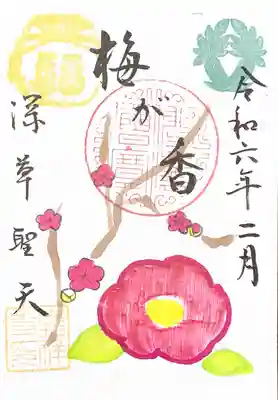 令和六年二月
梅が香
深草聖天